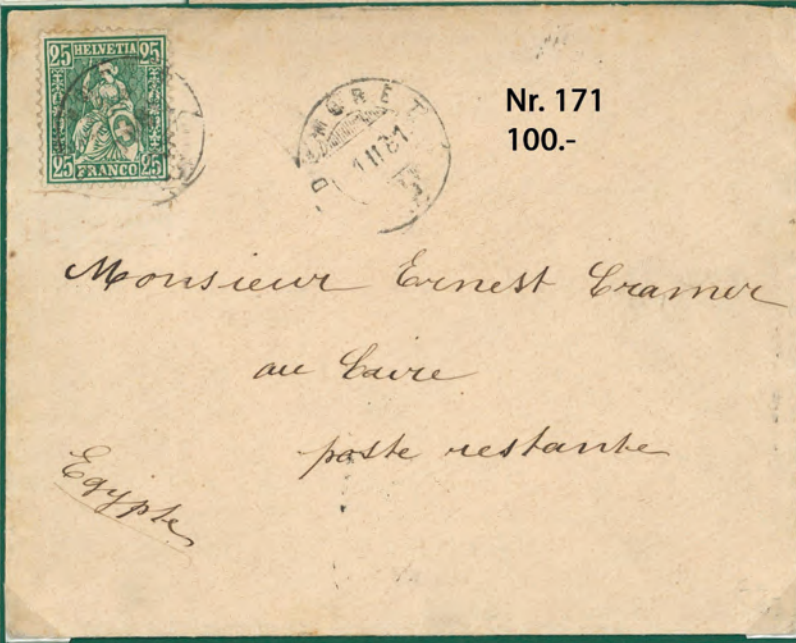 25 HELVETIA 25
25 FRANCO 25
CORMORET
1 II 81
Nr. 171
100.-
Monsieur Ernest Cramer
au Caire
poste restante
Egypte